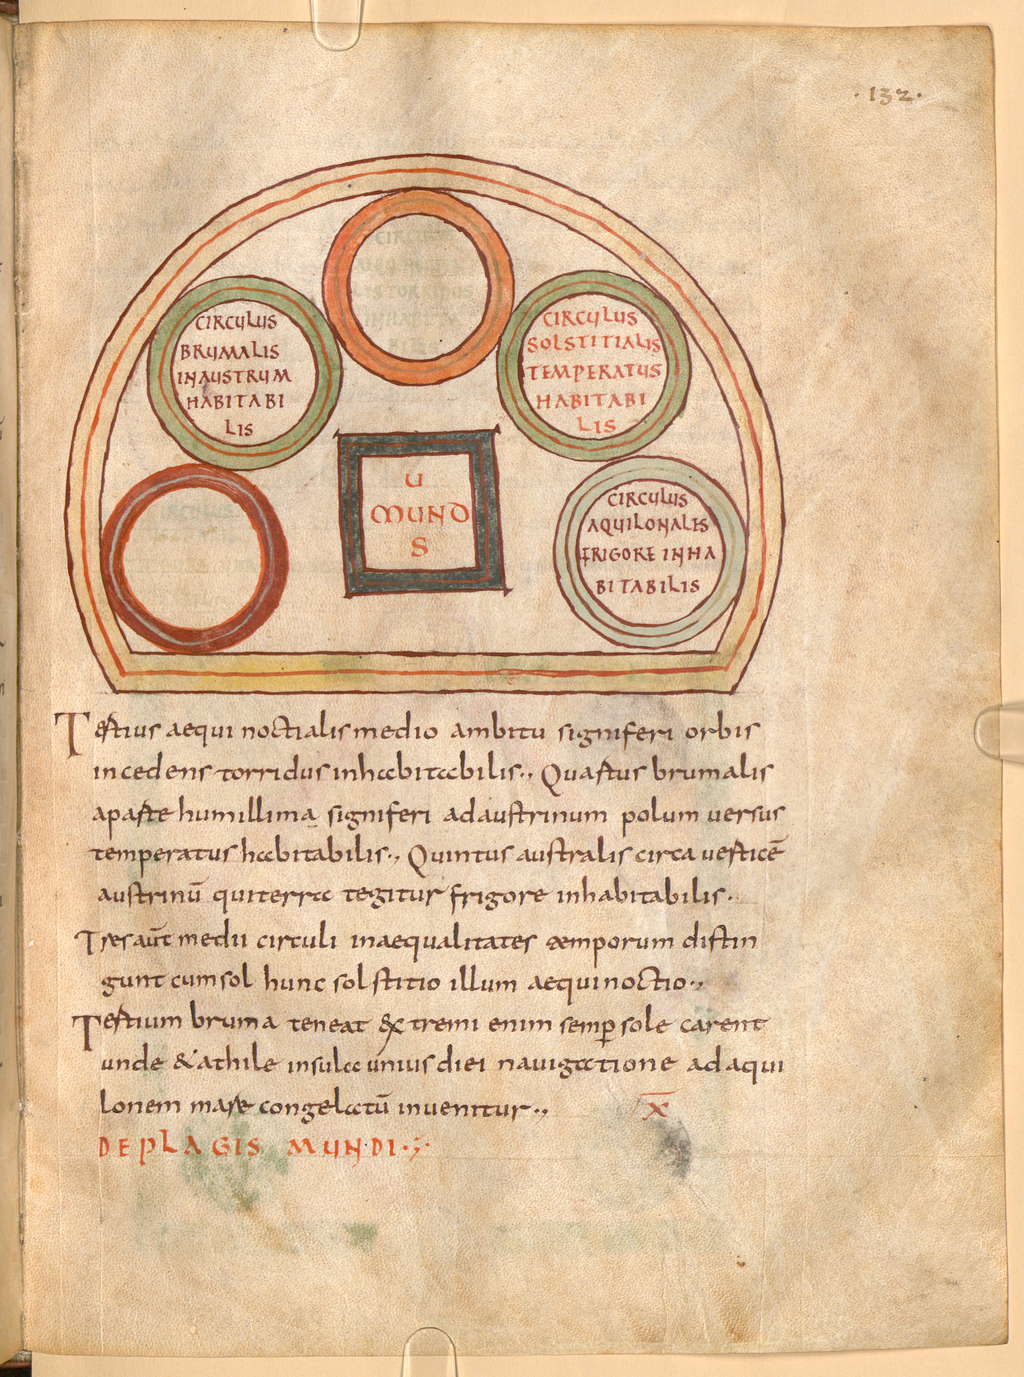 ·132·
CIRCULUS
BRUMALIS
INAUSTRUM
HABITABI
LIS
CIRCULUS
SOLSTITIALIS
TEMPERATUS
HABITABI
LIS
U
MUND
S
CIRCULUS
AQUILONALIS
FRIGORE INHA
BITABILIS
Tertius aequinoctialis medio ambitu signiferi orbis
incedens torridus inhabitabilis·, Quartus brumalis
aparte humillima signiferi adaustrinum polum uersus
temperatus habitabilis·, Quintus australis circa uerticē
austrinū quiterra tegitur frigore inhabitabilis·
Tres aūt medii circuli inaequalitates temporum distin
gunt cumsol hunc solstitio illum aequinoctio·,
Tertium bruma teneat &xtremi enim semꝑ sole carent
unde & athile insula unius diei nauigatione adaqui
lonem mare congelatū inuenitur·,
x̅
DEPLAGIS MUNDI·,